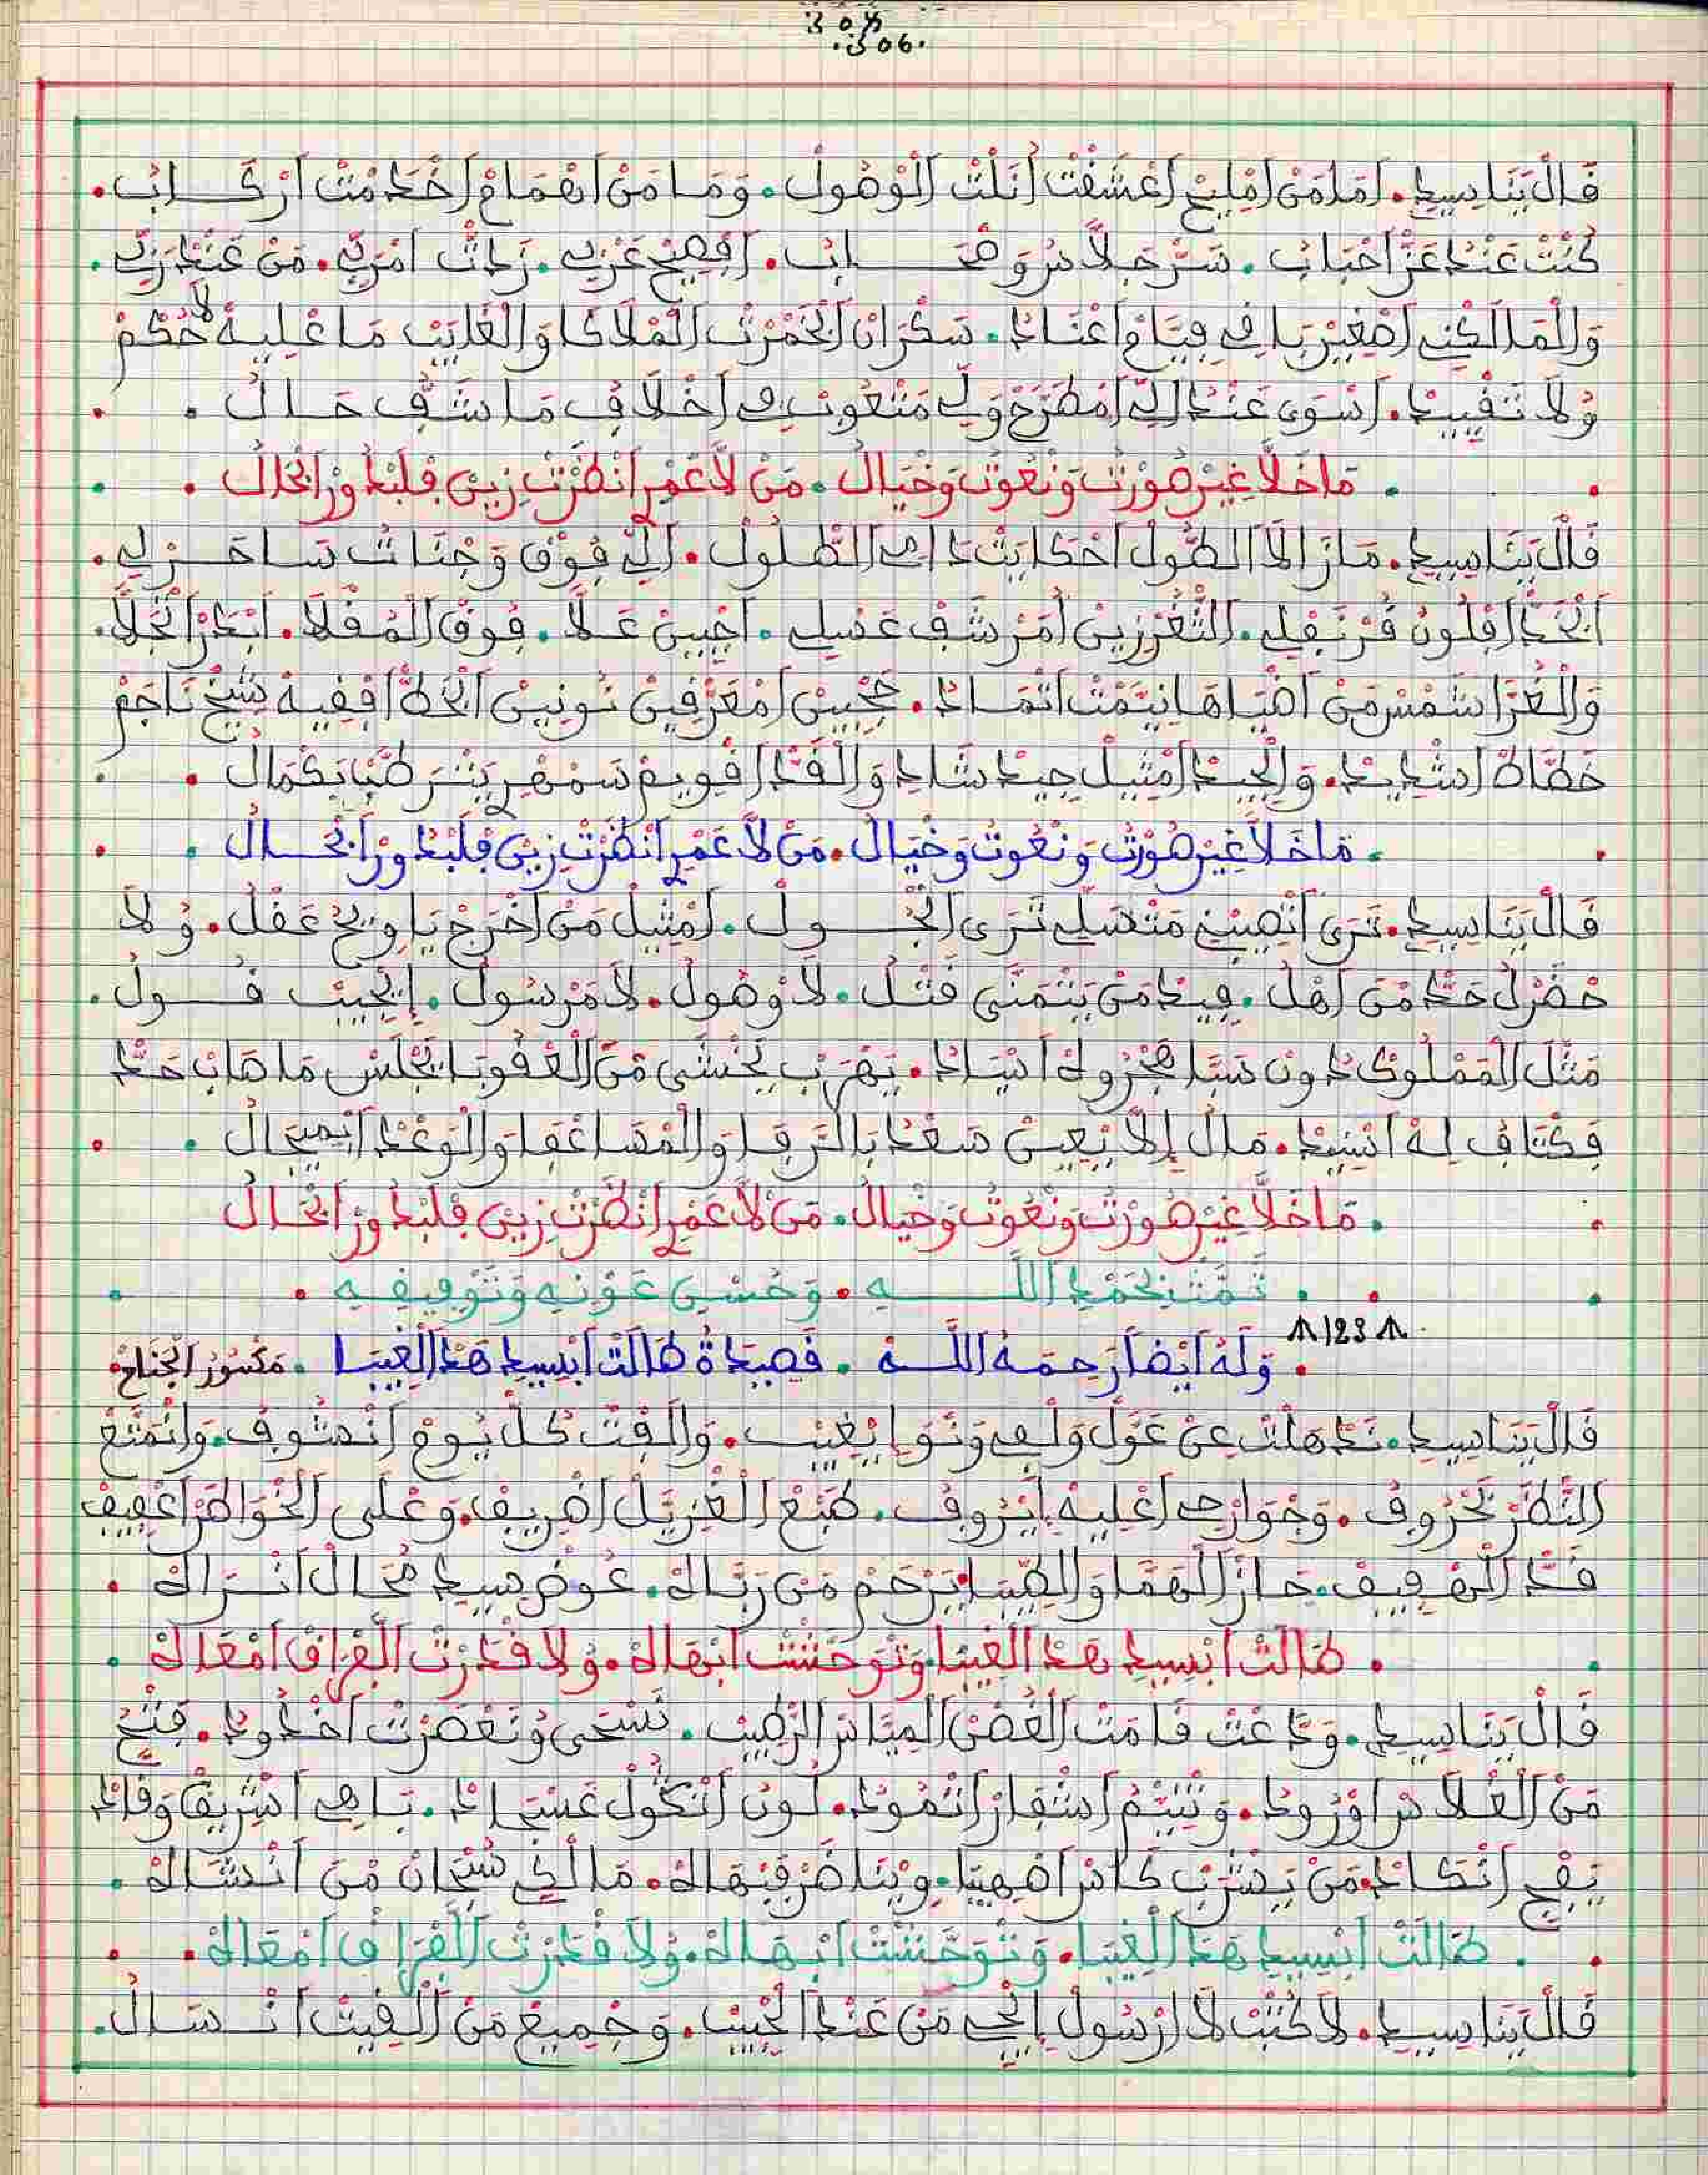 304
.306.
قَالْ يَنَا سِيدِ . اَمَا مَنْ اَمْلِيحْ اَعْشَقْتْ اُنَلْتْ الْوْصُولْ . وَمَا مَنْ اَهْمَامْ اَخَدْمَتْ اَرْكَابُ .
كُنْتْ عَنْدْ عَزّْ اَحْبَابُ . سَرْجَلَّاسُ وَصْحَابُ . اَفْصِيحْ عَرْبِي . زَادْتْ اَمْرَبِّي . مَنْ عَنْدْ رَبِّي .
وَالْمَالَكْنِي اَصْغِيرْ بَاقِي فِيَّامْ اَعْنَادُ . سَكْرَانْ اَلْخَمْرْتْ الْمْلَاكَا وَالْغَايَبْ مَا عْلِيهْ لَا حُكْمْ
وُلَا تَقْيِيدْ . اَسْوَى عَنْدْ اِلِّي اَمْطَرَّحْ وَلِّي مَتْعُوبْ فِي اَخْلَافُ مَا شَفّْ حَالُ .
مَا خَلَّا غِيرْ صُورْتُ وَنْعُوتُ وَخْيَالُ . مَنْ لَا عَمْرِ اَنْظَرْتْ زِينْ قَلْبْ دُورْ اَلْخَالُ .
قَالْ يَنَا سِيدِ . مَازَالْ اَلطُّولْ اَحْكَايْتْ دَامِي الطّْلُولْ . اِلِّي فُوقْ وَجْنَاتُ سَاحَرْلِي .
اَلْخَدّْ اَفْلُونْ قُرْنَفْلِي . الثَّغْرْ زِينْ اُمَرْشَفْ عَسْلِي . اَجْبِينْ عَلَّا . فُوقْ الْمُقْلَا . اَبْدَرْ اَتْجَلَّا .
وَالْغُرَّا شَمْسْ مَنْ اَضْيَاهَا نِيتَمْتْ اَتْمَادُ . حَجْبِينْ اَمْعَرْقِينْ نُونِينْ اَلْخَطّْ اَفْقِيهْ شِيخْ نَاجَمْ
خَطَّاطْ اَشْدِيدْ . وَالْجِيدْ اَمْثِيلْ جِيدْ شَادِ وَالْقَدّْ اَقْوِيمْ سَمْهْرِي يَنْتَرْ طَبَّا بَكْمَالُ .
مَا خَلَّا غِيرْ صُورْتُ وَنْعُوتُ وَخْيَالُ . مَنْ لَا عَمْرِ اَنْظَرْتْ زِينْ قَلْبْ دُورْ اَلْخَالُ .
قَالْ يَنَا سِيدِ . تَرَى اَنْصِيبْنِي مَتْصَلِّي تَرَى اَلْحُولْ . اَمْثِيلْ مَنْ اَخْرَجْ يَا وِيحْ عَقْلُ . وُلَا
حَضْرَلْ حَدّْ مَنْ اَهْلُ . فِيدْ مَنْ يَتْمَنَّى قَتْلُ . لَا وْصُولْ . لَا مَرْسُولْ . اِيجِيبْ قُولْ .
مَثْلْ الْمَمْلُوكْ دُونْ سَبَّا هَجْرُوهْ اَسْيَادُ . يَهْرَبْ يَخْشَى مَنْ الْعْقُوبَا يَجْلَسْ مَا صَابْ حَدّْ
فَكْتَافُ لِهْ اَسْنِيدْ . مَالُ اِلَّا يْعِينْ سَعْدُ بَالْرَفَا وَالْمْسَاعْفَا وَالْوَعْدْ اَيْمِيحَالُ .
مَا خَلَّا غِيرْ صُورْتُ وَنْعُوتُ وَخْيَالُ . مَنْ لَا عَمْرِ اَنْظَرْتْ زِينْ قَلْبْ دُورْ اَلْخَالُ
تَمَّتْ بِحَمْدِ اللَّهِ . وَحُسْنِ عَوْنِهِ وَتَوْفِيقِهِ .
123
وَلَهُ أَيْضًا رَحِمَهُ اللَّهُ . قَصِيدَةُ طَالَتْ اَسِيدِ هَدْ الْغِيبَا . مَكْسُورْ الْجْنَاحْ
قَالْ يَنَا سِيدِ . نَدَهْلَتْ عَنْ عَوَّلْ وَلْفِي وَنْوَا اِيْغِيبْ . وَالَفْتْ كُلّْ يُومْ اَنْشُوفُ . وَانْمَتَّعْ
النّْظَرْ بَحْرُوفُ . وَجْوَارْحِي اَعْلِيهْ اَيْزُوفُ . طَبْعْ الْغْزَيَّلْ اَضْرِيفْ . وَعْلَى الْخْوَاطَرْ اَعْفِيفْ
قَدّْ الْهْفِيفْ . حَازْ الْهَمَّا وَالطِّيبَا يَرْحَمْ مَنْ رَبَّاكْ . عُوضْ سِيدِ مُحَالْ اَنْرَاكْ .
طَالَتْ اَسِيدِ هَدْ الْغِيبَا وَتْوَحَّشْتْ اَبْهَاكْ . وُلَا قَدَّرْتْ الْفْرَاقْ اَمْعَاكْ .
قَالْ يَنَا سِيدِ . وَدَّعْتْ قَامَتْ الْغُصْنْ الْمِيَّاسْ الرّْطِيبْ . نَسْتَحَى وُتَعْصَرْتْ اَخْدُودُ . فَتْحُ
مَنْ الْغْلَاسْ اَوْرُودُ . وَتْبَسَّمْ اَشْفَارْ اَتْمُودُ . لُونْ اَنْكُولْ عَسْجَادْ . بَاهِي اَشْرِيقْ وَقَّادْ
يَفْجِي اَنْكَادْ . مَنْ يَشْرَبْ كَاسْ اَصْهِيبَا . وِيْنَاضَرْ فِبْهَاكْ . مَالْكِي سُبْحَانْ مَنْ اَنْشَاكْ .
طَالَتْ اَسِيدِ هَدْ الْغِيبَا . وَتْوَحَّشْتْ اَبْهَاكْ . وُلَا قَدَّرْتْ الْفْرَاقْ اَمْعَاكْ .
قَالْ يَنَا سِيدِ . لَا كْتُبْ لَا اَرْسُولْ اِيجِي مَنْ عَنْدْ الْحْبِيبْ . وَجْمِيعْ مَنْ اَلْفِيتْ اَنْسَالْ .